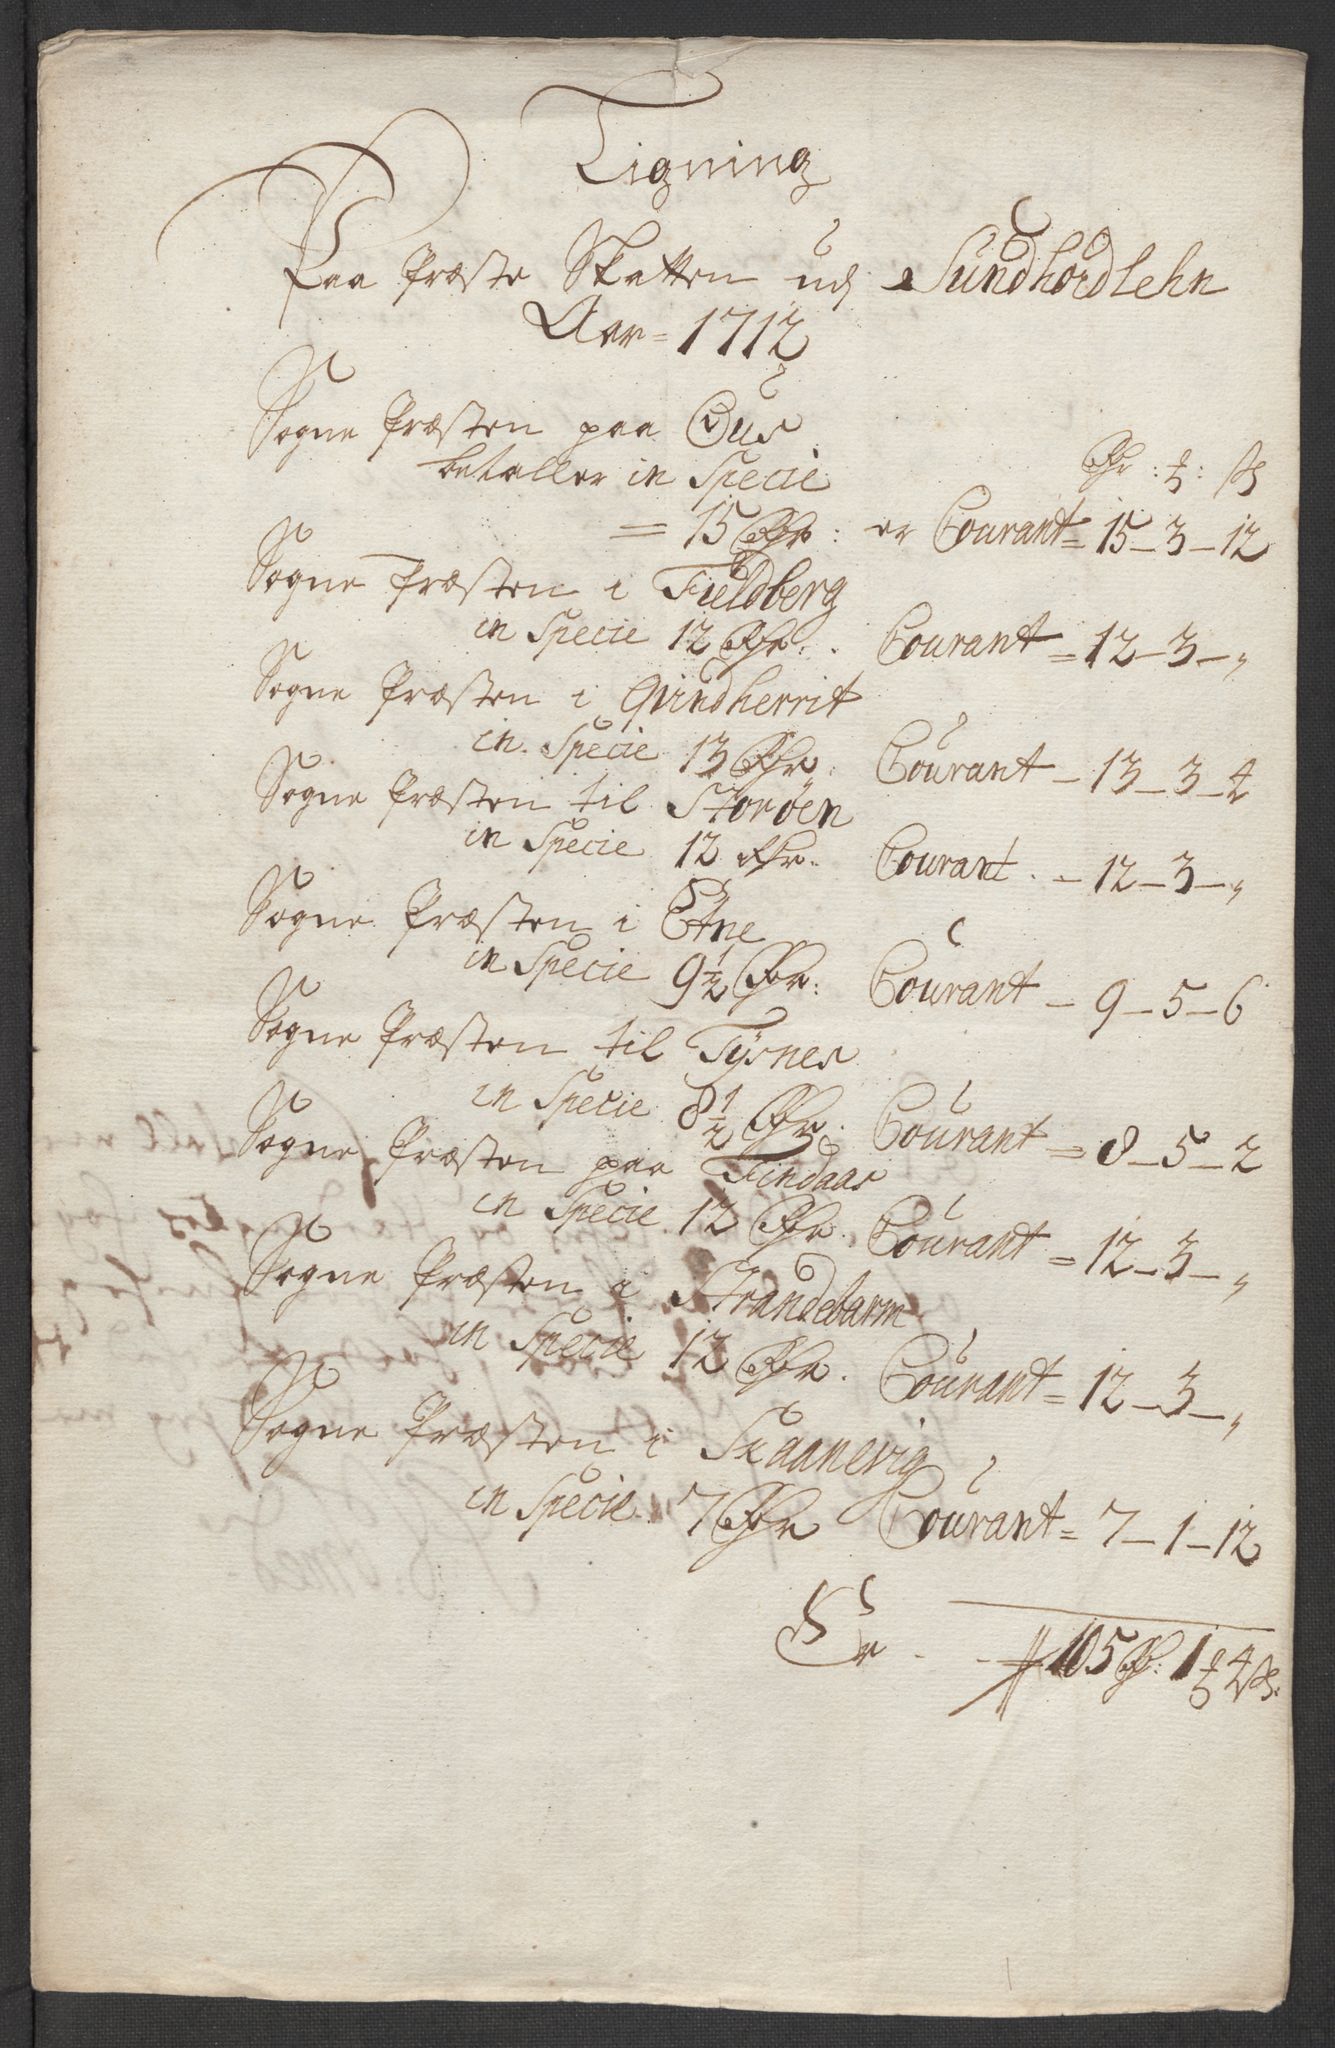 Ligning
Paa Præste Skatten udj Sundhordlehn
Aar = 1712
Sogne Præsten paa Ous
betaller in Specie Rdr : ꝳ : ß
= 15 Rdr : er Courant = 15 – 3 – 12
Sogne Præsten i Fieldberg
in Specie 12 Rdr. Courant = 12 – 3 – „
Sogne Præsten i Qvindherrit
in Specie 13 Rdr. Courant – 13 – 3 – 4
Sogne Præsten til Storøen
in Specie 12 Rdr. Courant – 12 – 3 – „
Sogne Præsten i Etne
in Specie 9 1/2 Rdr. Courant – 9 – 5 – 6
Sogne Præsten til Tysnes
in Specie 8 1/2 Rdr. Courant = 8 – 5 – 2
Sogne Præsten paa Findaas
in Specie 12 Rdr. Courant = 12 – 3 – „
Sogne Præsten i Strandebarm
in Specie 12 Rdr. Courant = 12 – 3 – „
Sogne Præsten i Skaanevig
in Specie 7 Rdr Courant = 7 – 1 – 12
Er – 105 Rd: 1 ꝳ 4 ß.